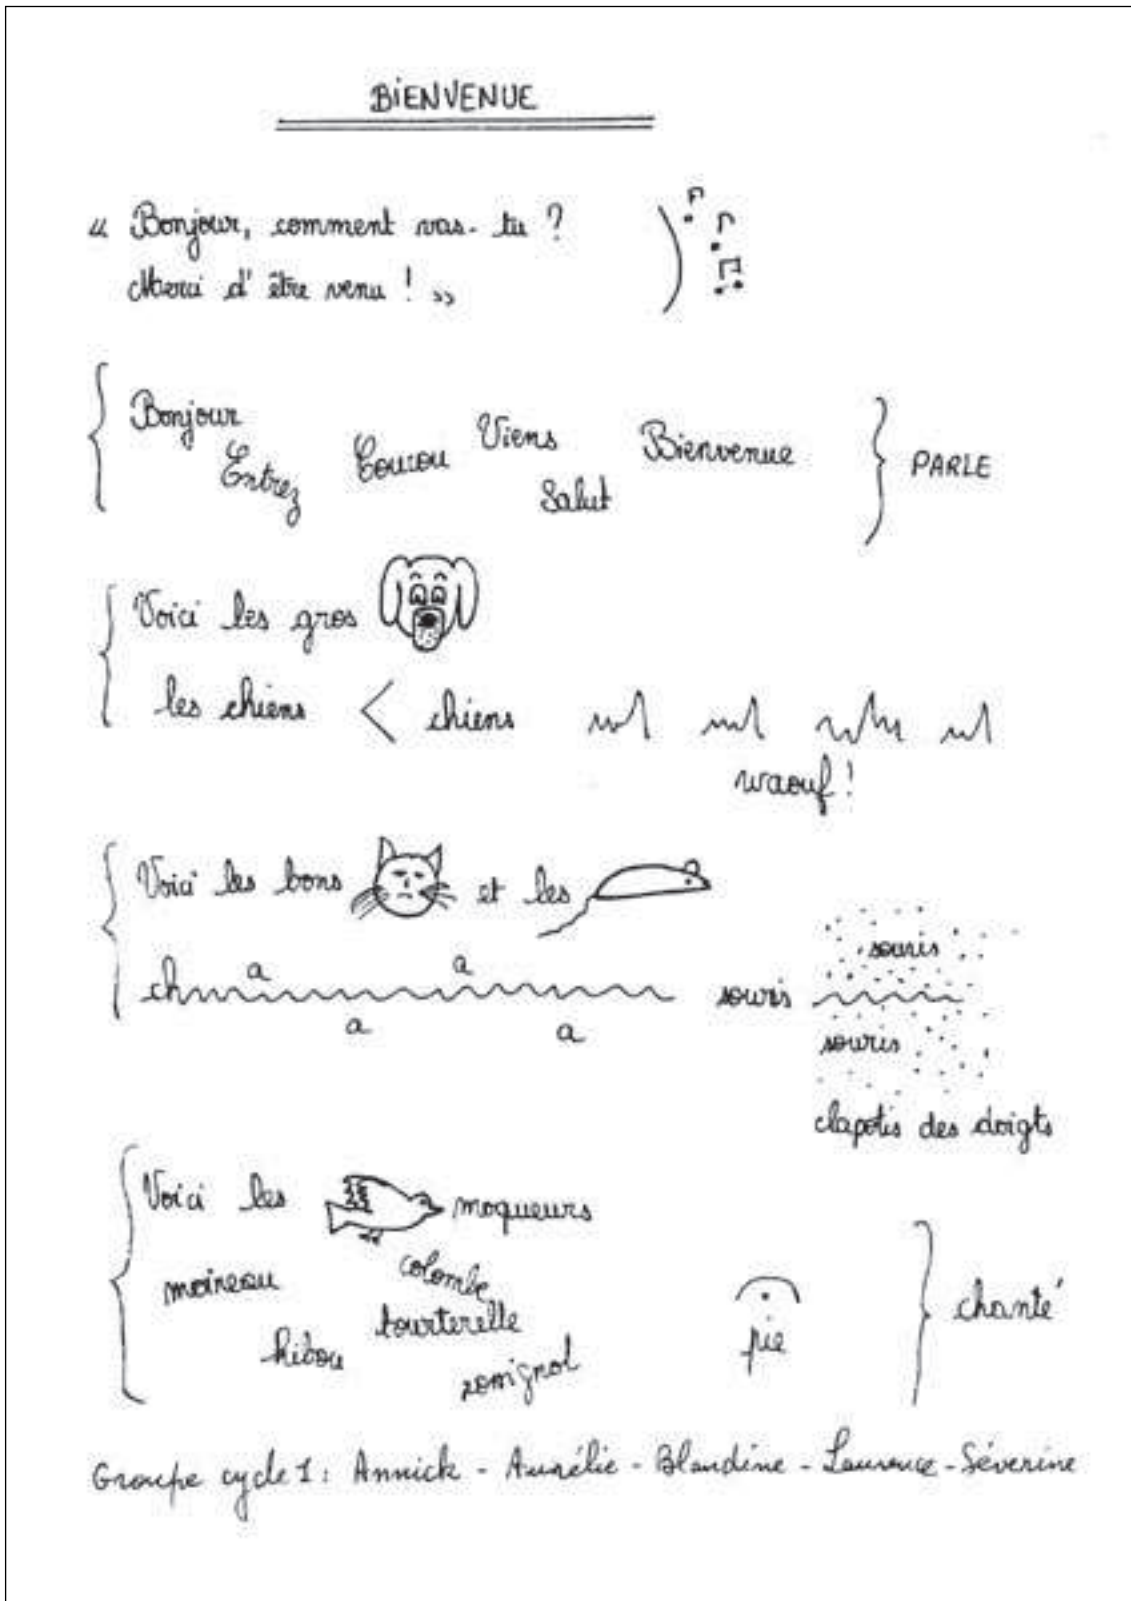 BiENVENUE
« Bonjour, comment vas-tu ?
Merci d'être venu ! »
Bonjour Entrez Coucou Viens Salut Bienvenue PARLE
Voici les gros
les chiens < chiens
waouf !
Voici les bons et les
ch a a a a souris souris souris
clapotis des doigts
Voici les moqueurs
moineau colombe
hibou tourterelle pie chanté
rossignol
Groupe cycle 1 : Annick - Aurélie - Blandine - Laurence - Séverine